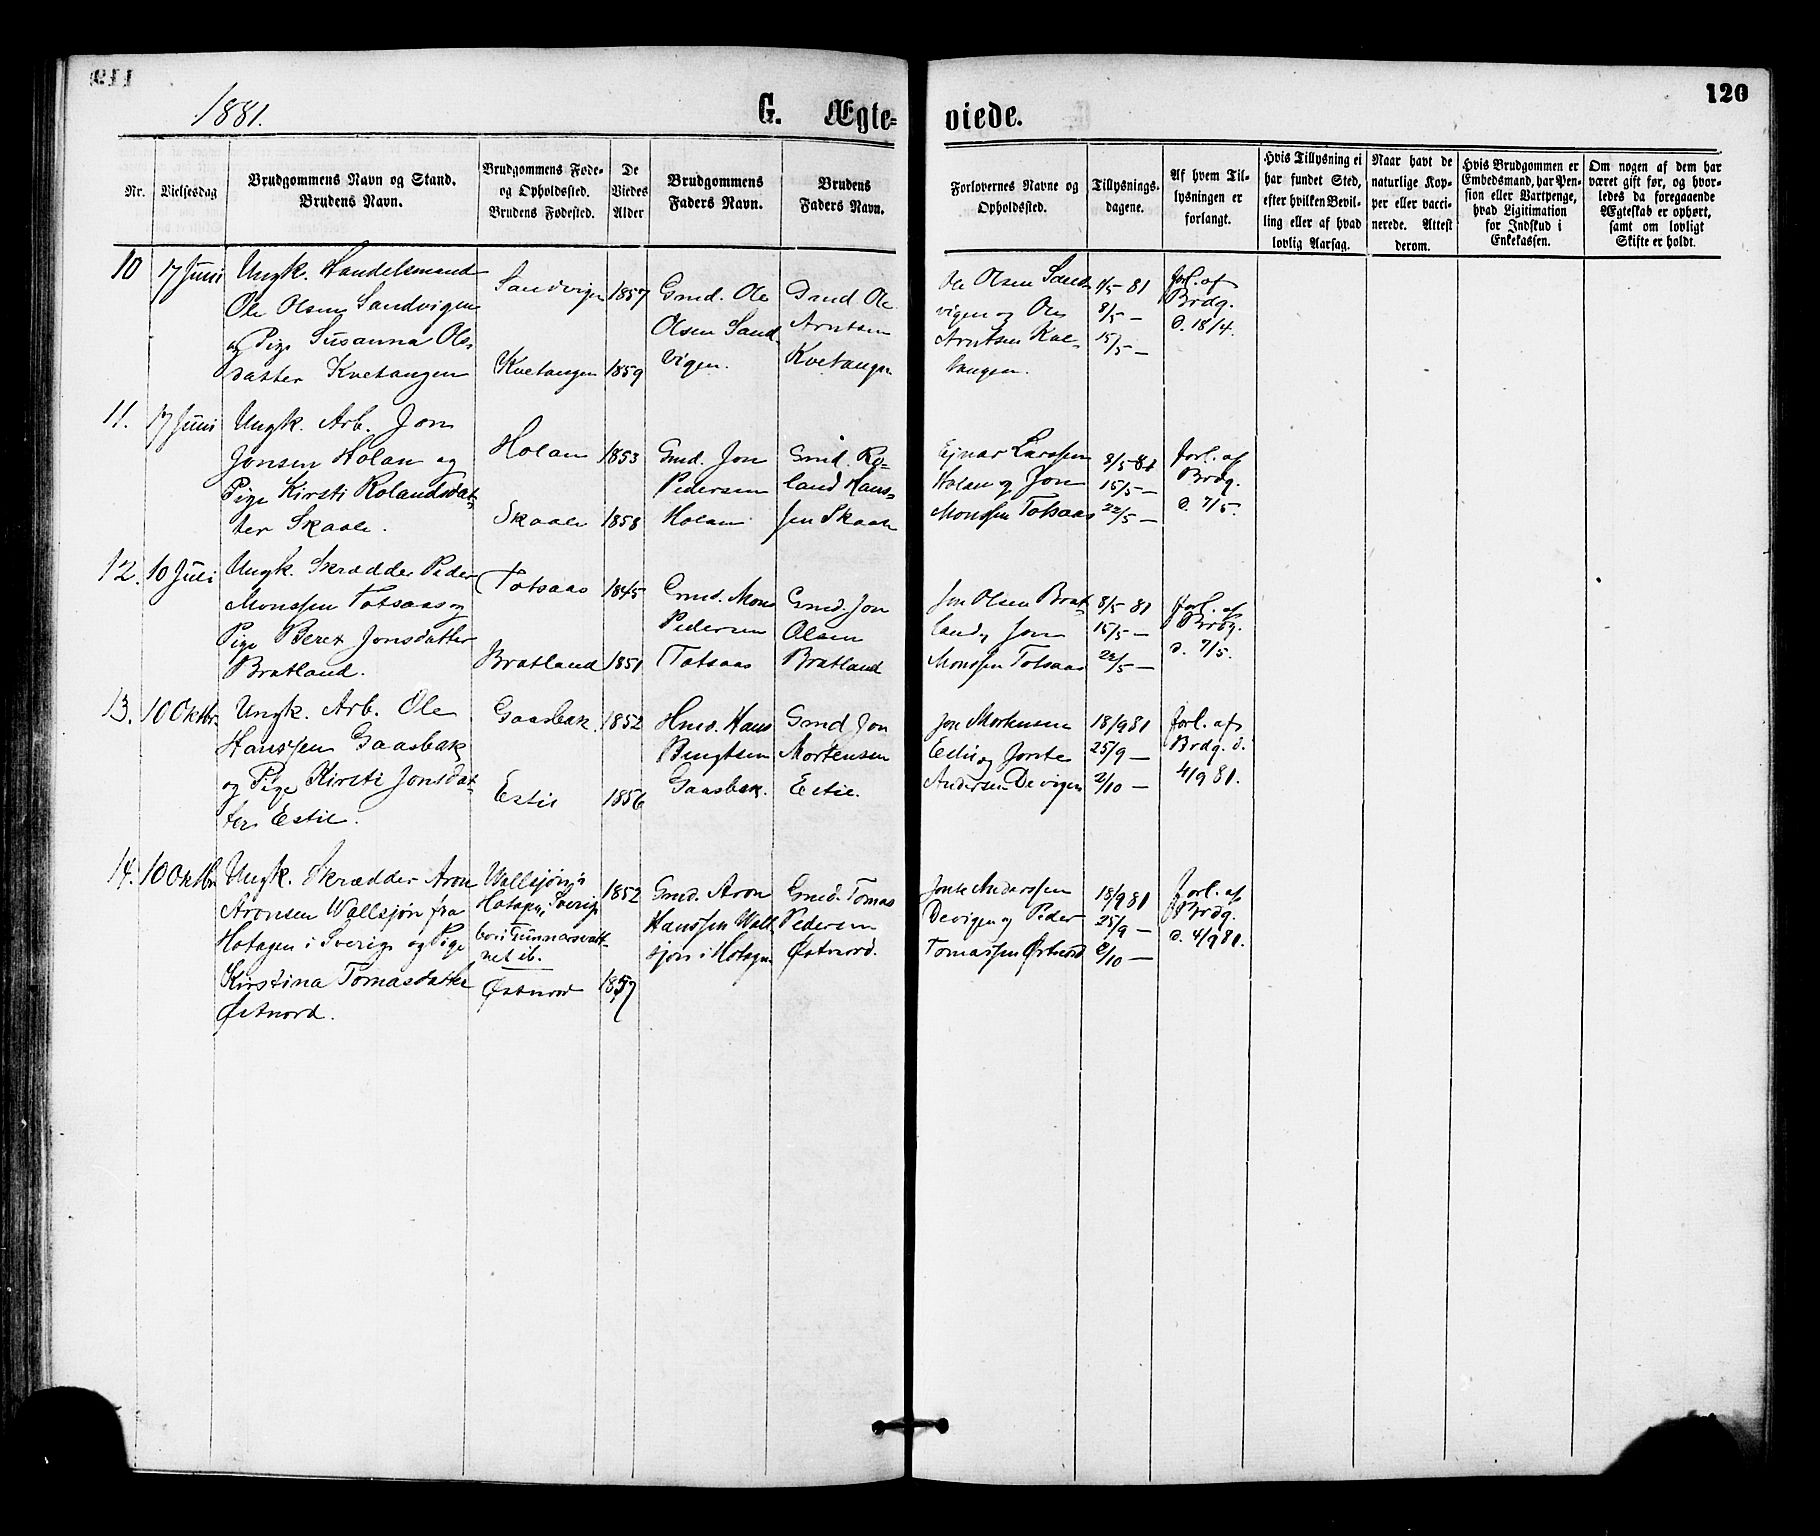 1881.
G. Ægte-
viede.
120
Nr.
Vielsesdag
Brudgommens Navn og Stand.
Brudens Navn.
Brudgommens Føde-
og Opholdssted.
Brudens Fødested.
De
Viedes
Alder
Brudgommens
Faders Navn.
Brudens
Faders Navn.
Forlovernes Navne og
Opholdssted.
Tillysnings-
dagene.
Af hvem Til-
lysningen er
forlangt.
Hvis Tillysning ei
har fundet Sted,
efter hvilken Bevil-
ling eller af hvad
lovlig Aarsag.
Naar havt de
naturlige Kop-
per eller vacci-
nerede. Attest
derom.
Hvis Brudgommen er
Embedsmand, har Pen-
sion eller Vartpenge,
hvad Ligitimation
for Indskud i
Enkekassen.
Om nogen af dem har
været gift før, og hvor-
ledes da foregaaende
Ægteskab er ophørt,
samt om lovligt
Skifte er holdt.
10
17 Juni
Ungk. Handelsmand
Ole Olsen Sandvigen
og Pige Susanna Ols-
datter Kvetangen
Sandvigen
Kvetangen
1857
1859
Gmd. Ole
Olsen Sand-
vigen.
Gmd Ole
Arntsen
Kvetangen
Ole Olsen Sand-
vigen og Ole
Arntsen Kve-
tangen.
1/5 - 81
8/5 -
15/5 -
forl. af
Brdg.
d. 18/4.
11.
17 Juni
Ungk. Arb. Jon
Jonsen Holan og
Pige Kirsti Rolandsdat-
ter Skaale.
Holan
Skaale
1853
1858
Gmd. Jon
Pedersen
Holan
Gmd. Ro-
land Hans-
sen Skaale
Ejnar Larssen
Holan og Jon
Monssen Totsaas
8/5 - 81
15/5 -
22/5 -
forl. af
Brdg.
d. 7/5.
12.
10 Juli
Ungk. Skrædder Peder
Monssen Totsaas og
Pige Beret Jonsdatter
Bratland.
Totsaas
Bratland
1845
1851
Gmd. Mons
Pedersen
Totsaas
Gmd. Jon
Olsen
Bratland
Jon Olsen Brat-
land, Jon
Monssen Totsaas
8/5 81
15/5 -
22/5 -
forl. af
Brdg.
d. 7/5.
13.
10 Oktbr.
Ungk. Arb. Ole
Hanssen Gaasbak
og Pige Kirsti Jonsdat-
ter Estil.
Gaasbak.
Estil
1852
1856
Hmd. Hans
Bengtsen
Gaasbak.
Gmd Jon
Mortensen
Estil.
Jon Mortensen
Estil og Jonte
Andersen Devigen
18/9 81
25/9 -
2/10 -
forl. af
Brdg. d.
4/9 81.
14.
10 Oktbr.
Ungk. Skrædder Aron
Aronsen Wallsjøn fra
Hotagen i Sverige og Pige
Kirstina Tomasdatter
Østnord.
Wallsjøn i
Hotagen, Sverige
bor i Gunnarsvatt-
net ib.
Østnord
1852
1857
Gmd. Aron
Hanssen Wall-
sjøn i Hotagen
Gmd. Tomas
Pedersen
Østnord.
Jonte Anderssen
Devigen og Peder
Tomassen Østnord
18/9 81
25/9 -
2/10 -
forl. af
Brdg.
d. 4/9 81.